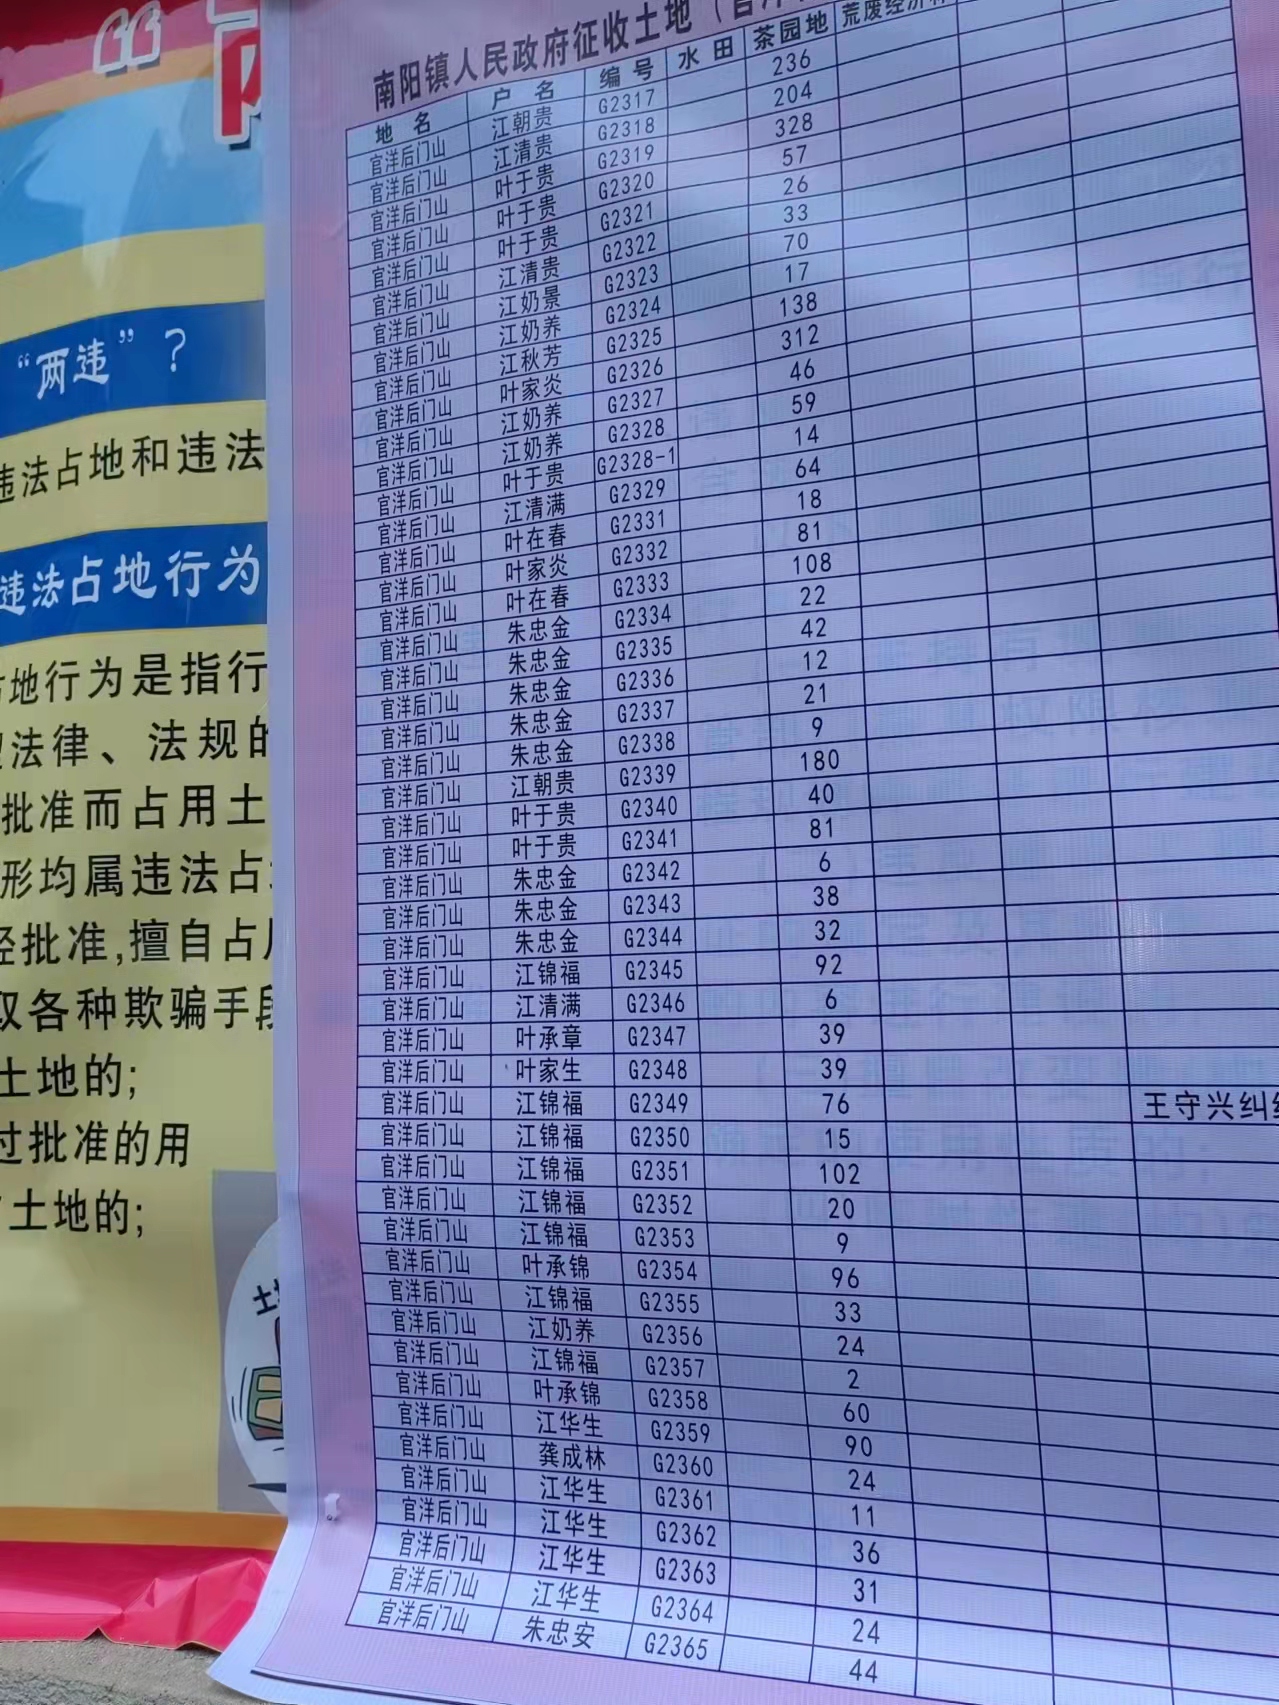 “两违”?
违法占地和违法
违法占地行为
地行为是指行
法律、法规的
批准而占用土
形均属违法占
批准,擅自占
取各种欺骗手段
土地的;
过批准的用
土地的;
南阳镇人民政府征收土地(官洋
地名 户名 编号 水田 茶园地 荒废经济林
官洋后门山 江朝贵 G2317 236
官洋后门山 江清贵 G2318 204
官洋后门山 叶于贵 G2319 328
官洋后门山 叶于贵 G2320 57
官洋后门山 叶于贵 G2321 26
官洋后门山 江清贵 G2322 33
官洋后门山 江奶景 G2323 70
官洋后门山 江奶养 G2324 17
官洋后门山 江秋芳 G2325 138
官洋后门山 叶家炎 G2326 312
官洋后门山 江奶养 G2327 46
官洋后门山 江奶养 G2328 59
官洋后门山 叶于贵 G2328-1 14
官洋后门山 江清满 G2329 64
官洋后门山 叶在春 G2331 18
官洋后门山 叶家炎 G2332 81
官洋后门山 叶在春 G2333 108
官洋后门山 朱忠金 G2334 22
官洋后门山 朱忠金 G2335 42
官洋后门山 朱忠金 G2336 12
官洋后门山 朱忠金 G2337 21
官洋后门山 朱忠金 G2338 9
官洋后门山 江朝贵 G2339 180
官洋后门山 叶于贵 G2340 40
官洋后门山 叶于贵 G2341 81
官洋后门山 朱忠金 G2342 6
官洋后门山 朱忠金 G2343 38
官洋后门山 朱忠金 G2344 32
官洋后门山 江锦福 G2345 92
官洋后门山 江清满 G2346 6
官洋后门山 叶承章 G2347 39
官洋后门山 叶家生 G2348 39
官洋后门山 江锦福 G2349 76 王守兴纠
官洋后门山 江锦福 G2350 15
官洋后门山 江锦福 G2351 102
官洋后门山 江锦福 G2352 20
官洋后门山 江锦福 G2353 9
官洋后门山 叶承锦 G2354 96
官洋后门山 江锦福 G2355 33
官洋后门山 江奶养 G2356 24
官洋后门山 江锦福 G2357 2
官洋后门山 叶承锦 G2358 60
官洋后门山 江华生 G2359 90
官洋后门山 龚成林 G2360 24
官洋后门山 江华生 G2361 11
官洋后门山 江华生 G2362 36
官洋后门山 江华生 G2363 31
官洋后门山 江华生 G2364 24
官洋后门山 朱忠安 G2365 44